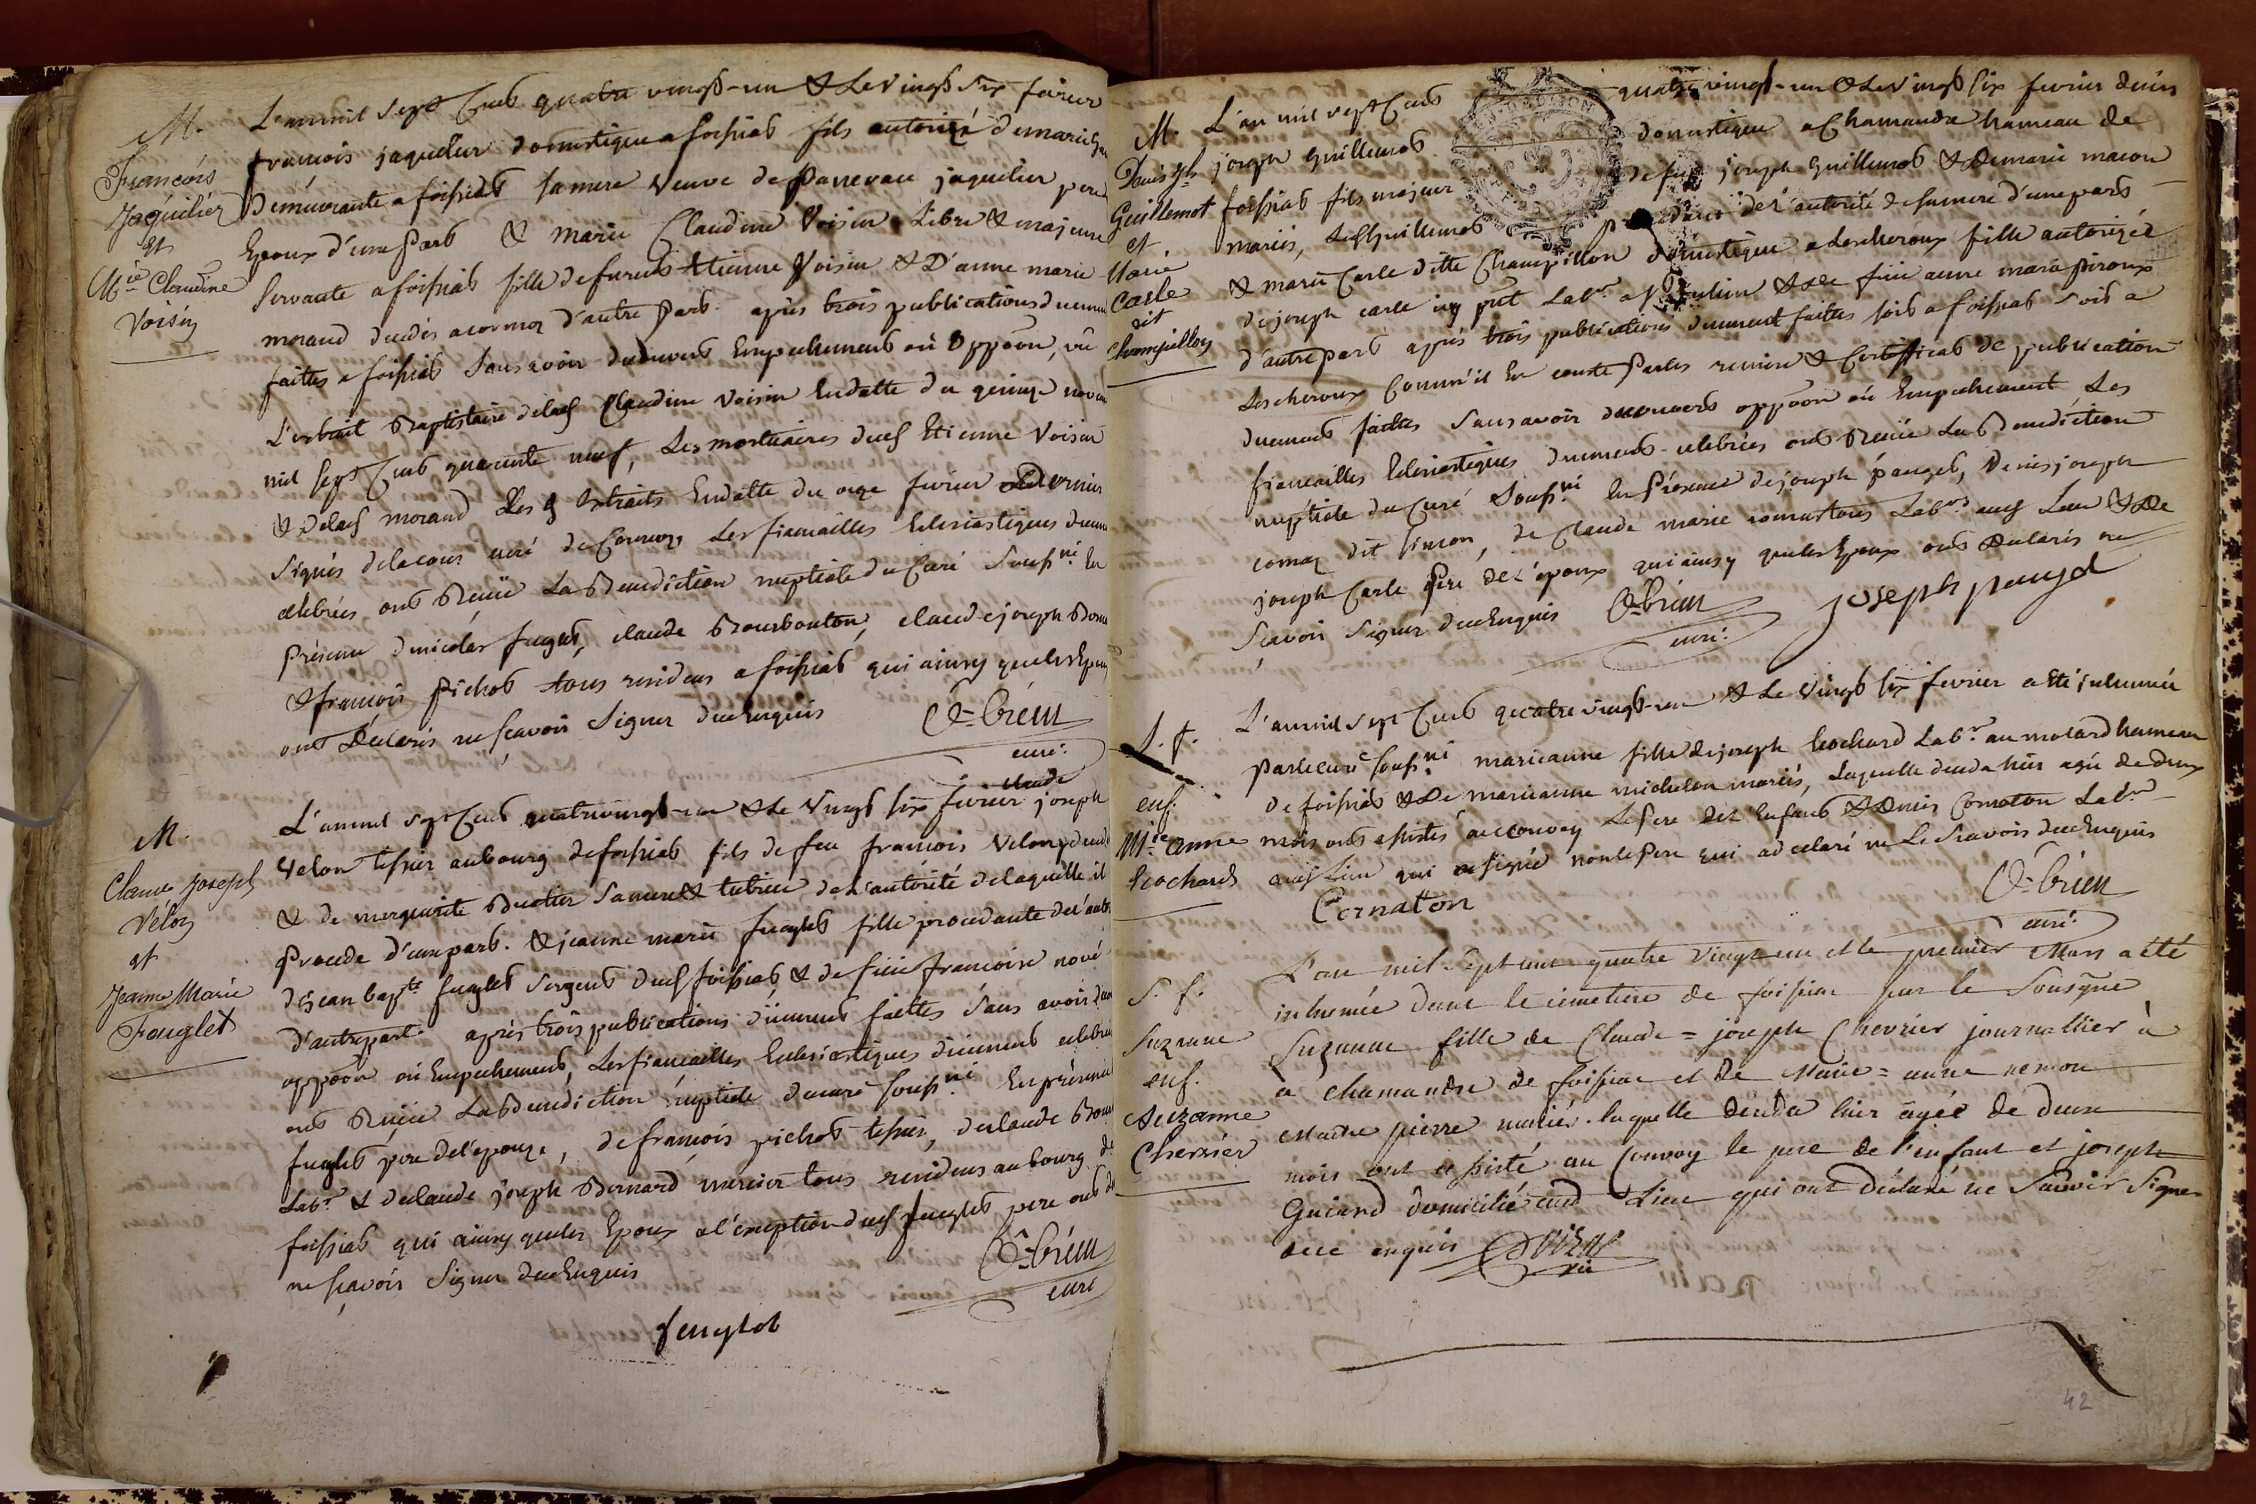 M.
François
Jaquilier
Et
M.ie Claudine
Voisin
L'an mil sept Cens quatre vingt-un & Le vingt six fevrier
françois jaquelier domestique a foissiat fils autorizé de marie
Demeurante a foissiat sa mere veuve de jaquelier pere
Epoux d'une Part & marie Claudine Voisin Libre & majeure
servante a foissiat fille de furent Etienne Voisin & D'anne marie
morand decedés a cormoz d'autre Part. après trois publications duement
faittes a foissiat sans avoir decouvert Empechement ou Oppoon, vu
L'extrait Baptistaire de lad Claudine Voisin En datte du quinze
mil sept Cens quarante neuf, Les mortuaires dud Etienne Voisin
& de lad morand Les extraits En datte du onze fevrier Dernier
signés delacour curé de Cormoz, Les fiancailles Eclesiastiques
celebrées ont Reçüe La Benediction nuptiale du Curé Souss.né En
Présence de nicolas fuget, claude Bourbouton, claude joseph
& françois Pichot tous residens a foissiat qui ainsy que les Epoux
ont Déclaré ne sçavoir Signer de ce Enquis
O-brien
curé.
M.
Claude Joseph
Véloz
et
Jeanne Marie
Feuglet
L'an mil sept Cens quatre vingt-un & Le vingt six fevrier claude joseph
Velon tissier au bourg de foissiat fils de feu francois Velon
& de marguerite Buatier sa mere & tutrice de L'autorité de laquelle il
Procede d'une part. & jeanne marie feuglet fille procedante de l'autorité
de jean bap.te feuglet sergent dud foissiat & de füe francoise nové
d'autre part. après trois publications duement faittes Sans avoir
oppoon ou Empechement, Les fiancailles Eclesiastiques duement celebrées
ont Reçüe La Benediction nuptiale du curé Souss.né En présence
feuglet pere de l'epouze, de françois pichot tissier, de claude
Lab.r & de claude joseph Bernard mercier tous residens au bourg de
foissiat qui ainsy que les Epoux a l'exception dud feuglet pere ont
ne sçavoir Signer de ce Enquis
O-brien
curé
feuglet
M.
Denis jph
Guillemot
et
Marie
Carle
dit
Champillon
L'an mil sept Cens quatre vingt-un & Le vingt six fevrier denis
joseph Guillemot domestique a Chamandre hameau de
foissiat fils majeur de feu joseph Guillemot & de marie macon
mariés, Led Guillemot de L'autorité de sa mere d'une part
& marie Carle ditte Champillon domestique a Lescheroux fille autorizée
de joseph carle Lab.r a & de füe anne marie piroux
d'autre part après trois publications duement faittes soit a foissiat soit a
Lescheroux Comm'il En conste Par les remise & Certifficat de publication
duement faittes Sans avoir decouvert oppoon ou Empechement Les
fiancailles Eclesiastiques duement celebrées ont Reçüe La Benediction
nuptiale du Curé Souss.né En Présence de joseph pauget, Denis joseph
comaz dit simon, de Claude marie Lab.rs aud Lieu & de
joseph Carle Pere de L'epoux qui ainsy que les Epoux ont Declarés ne
Sçavoir Signer de ce Enquis
O-brien
curé.
joseph pauget
S. f.
enf.
M.ie anne
Brochard
L'an mil sept Cens quatre vingt-un & Le vingt six fevrier a Eté inhumée
par le curé souss.né marieanne fille de joseph Brochard Lab.r au motard hameau
de foissiat & de marieanne michelon mariés, Laquelle deceda hier agée de deux
mois ont assistés au convoy Le Pere de L'Enfant & Denis Cornaton Lab.r
aud Lieu qui a signé non le Pere qui a declaré ne Le Scavoir de ce Enquis
Cornaton
O-brien
curé.
S. f.
Suzanne
enf.
Suzanne
Chevrier
L'an mil Sept cent quatre vingt un et le premier Mars a été
inhumée dans le cimetiere de foissiat par le Sousigné
Suzanne fille de Claude = joseph Chevrier journallier à
à chamandre de foissiat et de Marie = anne nemon
pierre mariés. laquelle deceda hier agée de deux
mois ont assisté au Convoy le pere de l'enfant et joseph
Guiard domicilié aud Lieu qui ont déclaré ne Savoir Signer
de ce enquis
42